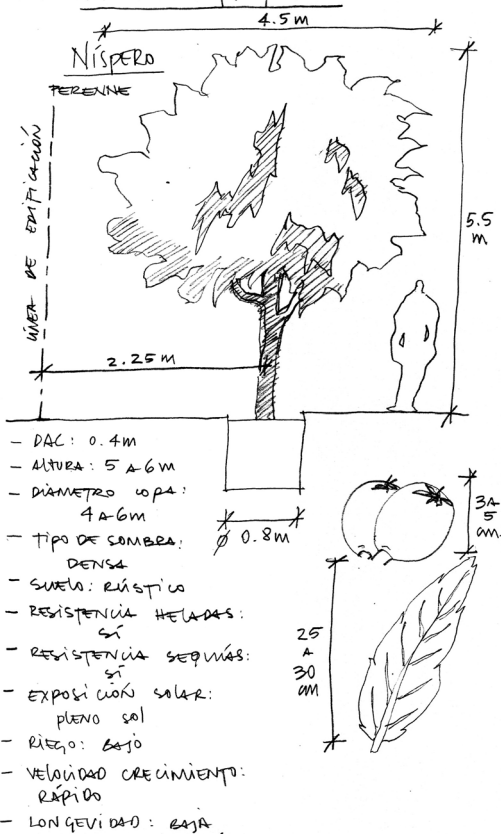 4.5 m
NÍSPERO
PERENNE
LÍNEA DE EDIFICACIÓN
5.5
m
2.25 m
- DAC: 0.4m
- ALTURA: 5 A 6 m
- DIÁMETRO COPA:
4 A 6m
- TIPO DE SOMBRA:
DENSA
- SUELO: RÚSTICO
- RESISTENCIA HELADAS:
SÍ
- RESISTENCIA SEQUÍAS:
SÍ
- EXPOSICIÓN SOLAR:
PLENO SOL
- RIEGO: BAJO
- VELOCIDAD CRECIMIENTO:
RÁPIDO
- LONGEVIDAD: BAJA
Ø 0.8m
3 A
5
cm.
25
A
30
cm